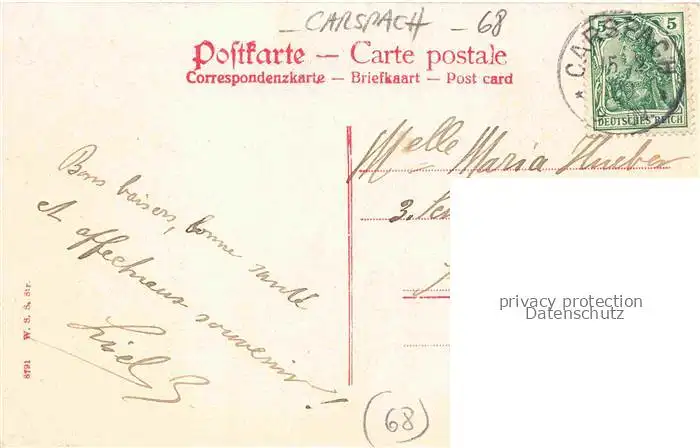 - CARSPACH - 68
Postkarte — Carte postale
Correspondenzkarte — Briefkaart — Post card
5 5
DEUTSCHES REICH
* CARSPACH *
Melle Maria Hueber
3.
Bons baisers, bonne santé
et affectueux souvenir!
privacy protection
Datenschutz
8791 W. S. S. Str.
(68)